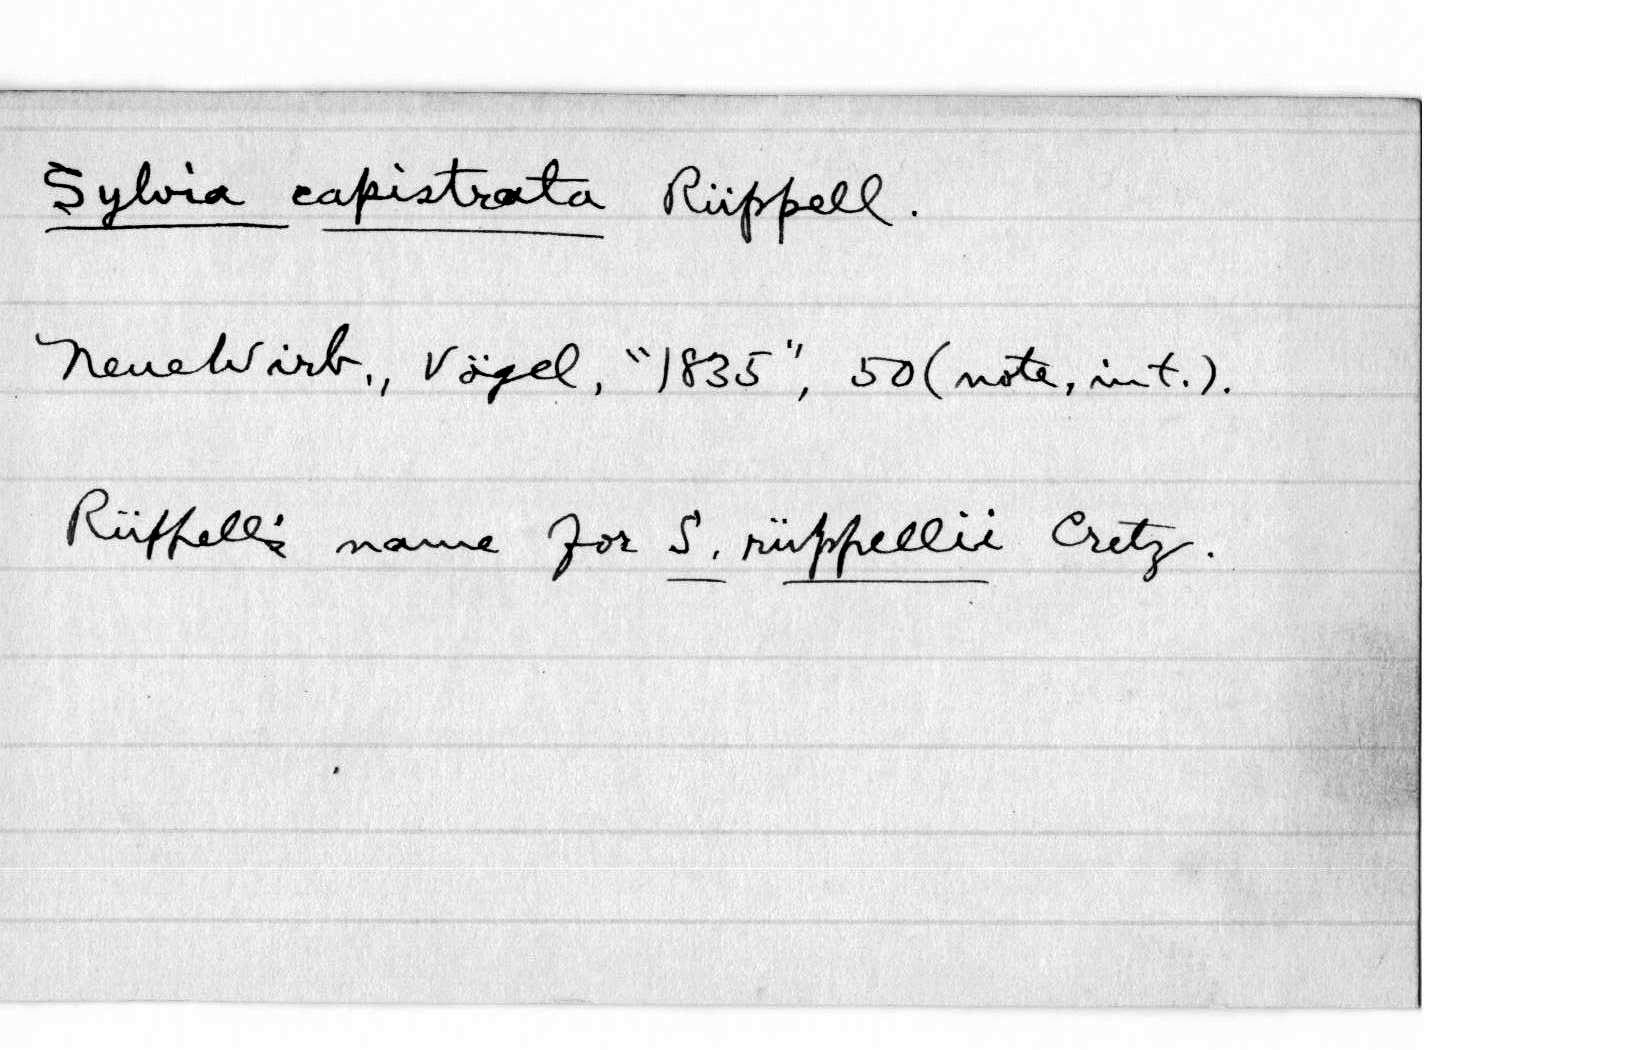 Sylvia capistrata Rüppell.
Neue Wirb., Vögel, "1835", 50 (note, int.).
Rüppell's name for S. rüppellii Cretz.